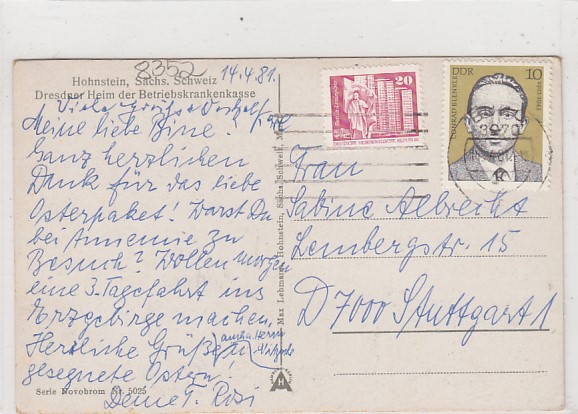 8352
Hohnstein, Sächs. Schweiz
Dresdner Heim der Betriebskrankenkasse
14.4.81.
Viele Grüße
Meine liebe Bine!
Ganz herzlichen
Dank für das liebe
Osterpaket! Warst Du
bei Annemie zu
Besuch? Wollen morgen
eine 3-Tagefahrt ins
Erzgebirge machen.
Herzliche Grüße u.
auch a. Herrn
gesegnete Ostern!
Deine T. Rosi
Serie Novobrom Nr. 5025
Max Lehmann, Hohnstein, Sächs. Schweiz
AH
20
DEUTSCHE DEMOKRATISCHE REPUBLIK
DDR 10
CONRAD BLENKLE
1901-1943
Frau
Sabine Albrecht
Lembergstr. 15
D 7000 Stuttgart 1